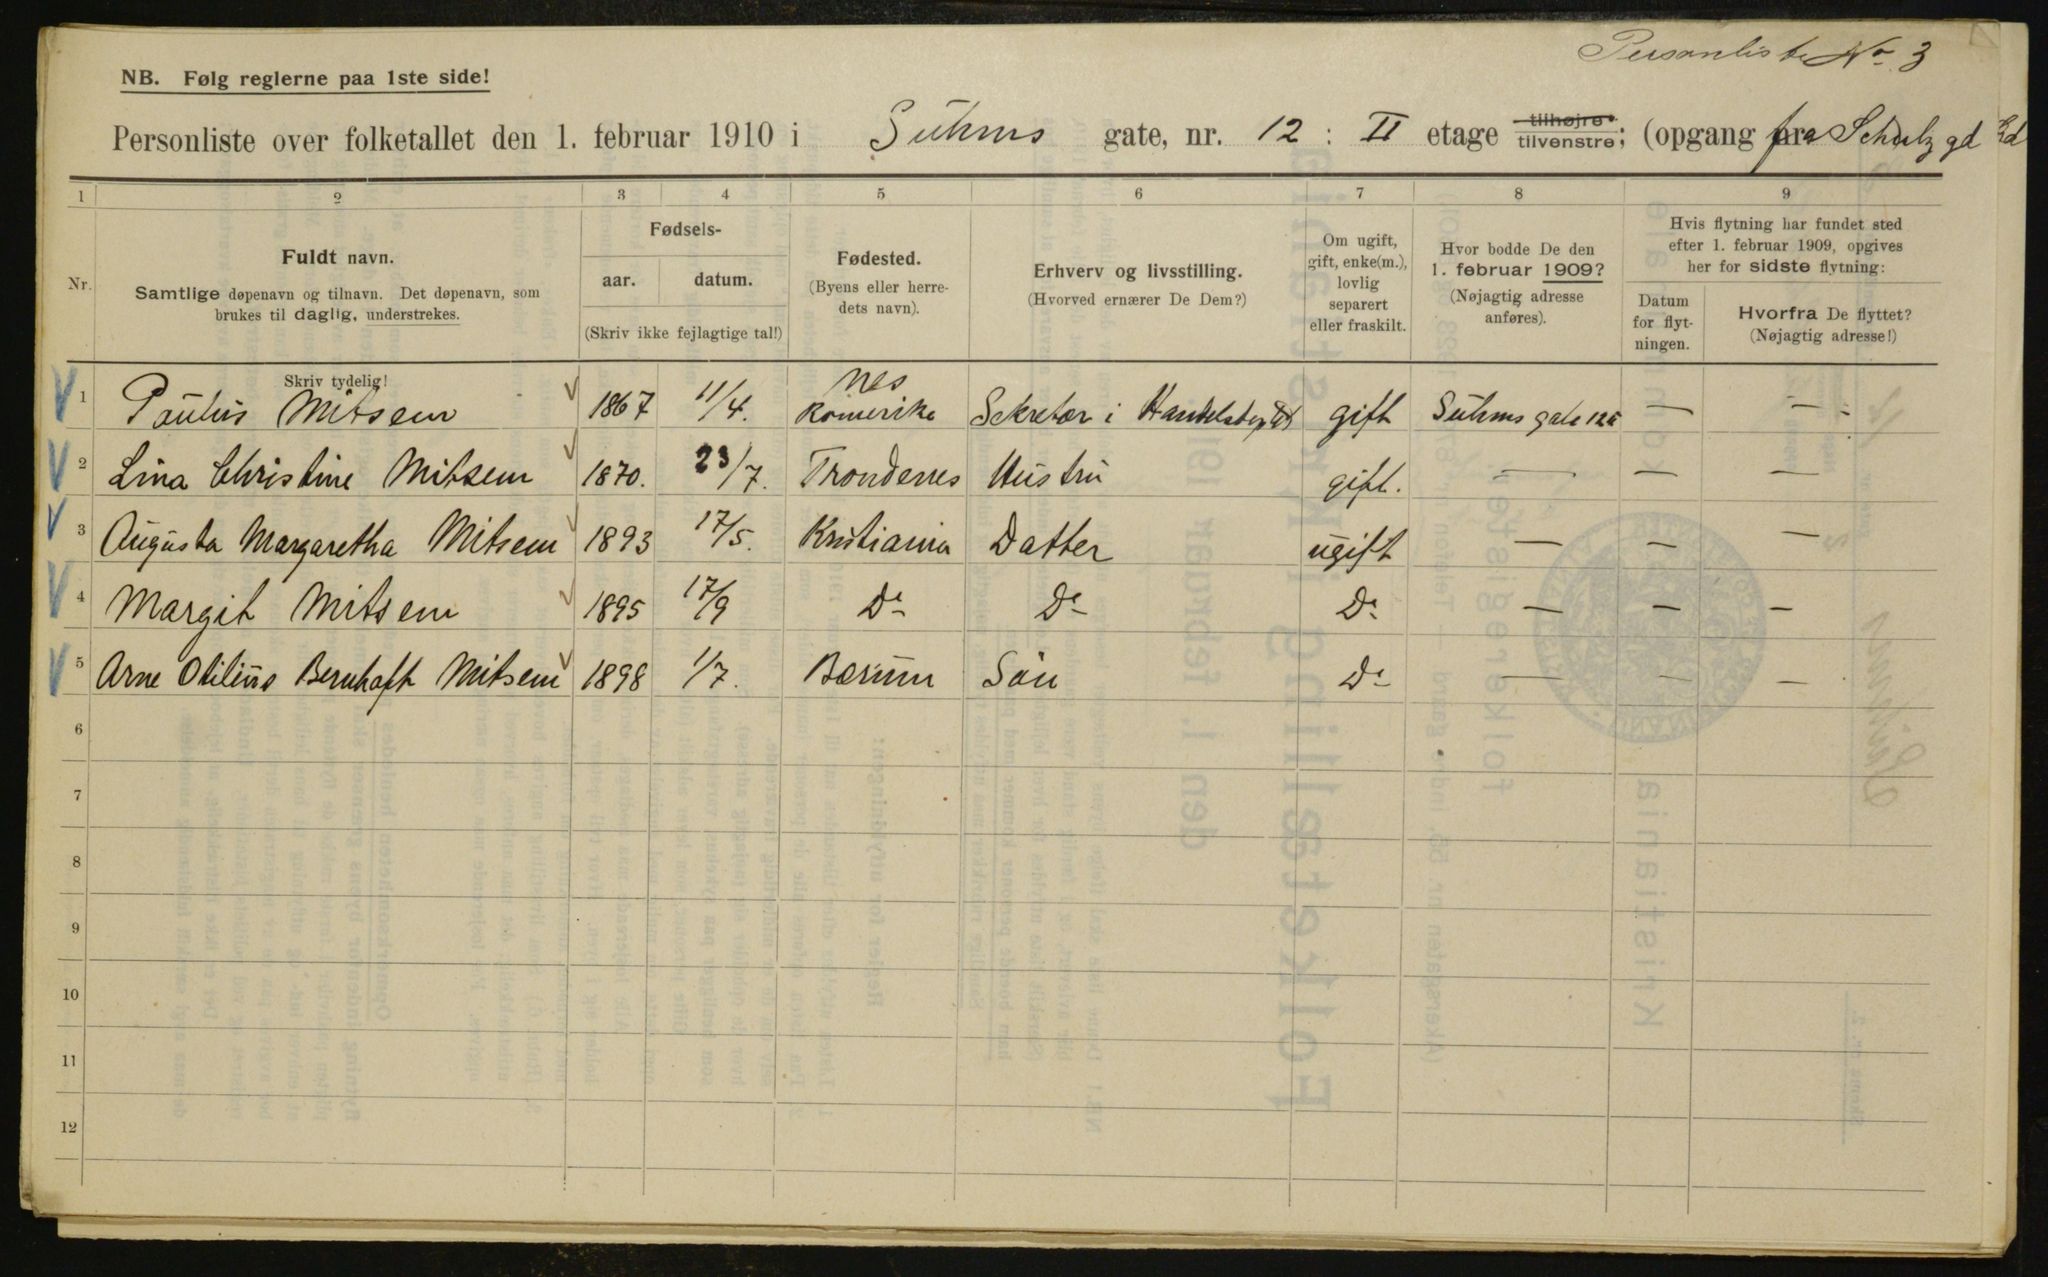 Personliste No 3
NB. Følg reglerne paa 1ste side!
Personliste over folketallet den 1. februar 1910 i Suhms gate, nr. 12 : II etage tilhøjre tilvenstre; (opgang fra Schulz gd
1 2 3 4 5 6 7 8 9
Nr.
Fuldt navn.
Samtlige døpenavn og tilnavn. Det døpenavn, som
brukes til daglig, understrekes.
Fødsels-
aar. datum.
(Skriv ikke fejlagtige tal!)
Fødested.
(Byens eller herre-
dets navn).
Erhverv og livsstilling.
(Hvorved ernærer De Dem?)
Om ugift,
gift, enke(m.),
lovlig
separert
eller fraskilt.
Hvor bodde De den
1. februar 1909?
(Nøjagtig adresse
anføres).
Hvis flytning har fundet sted
efter 1. februar 1909, opgives
her for sidste flytning:
Datum
for flyt-
ningen.
Hvorfra De flyttet?
(Nøjagtig adresse!)
Skriv tydelig!
1 Paulus Mitsem 1867 11/4. Nes Romerike Sekretær i Handelsdep gift Suhms gate 12 — —
2 Lina Christine Mitsem 1870. 23/7. Trondenes Hustru gift. — — —
3 Augusta Margaretha Mitsem 1893 17/5. Kristiania Datter ugift — — —
4 Margit Mitsem 1895 17/9 Do Do Do — — —
5 Arne Otilius Bernhoft Mitsem 1898 1/7. Bærum Søn Do — — —
6
7
8
9
10
11
12